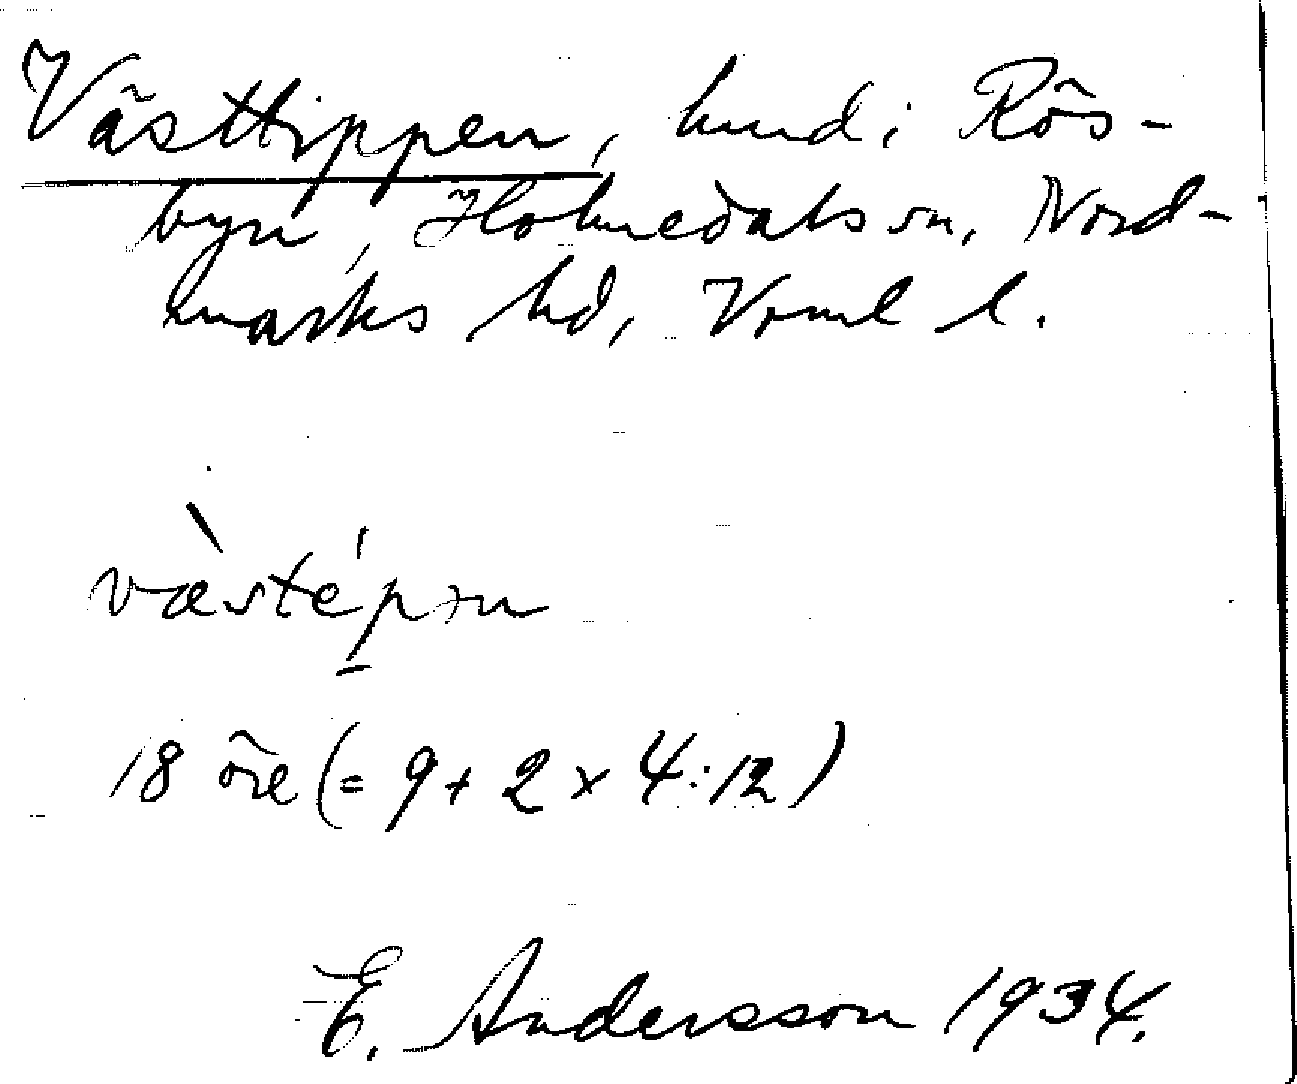 Västtippen, hmd i Rös-
byn, Holmedals sn, Nord-
marks hd, Vrml l.
væstépən
18 öre (= 9 + 2 x 4:12)
E. Andersson 1934.